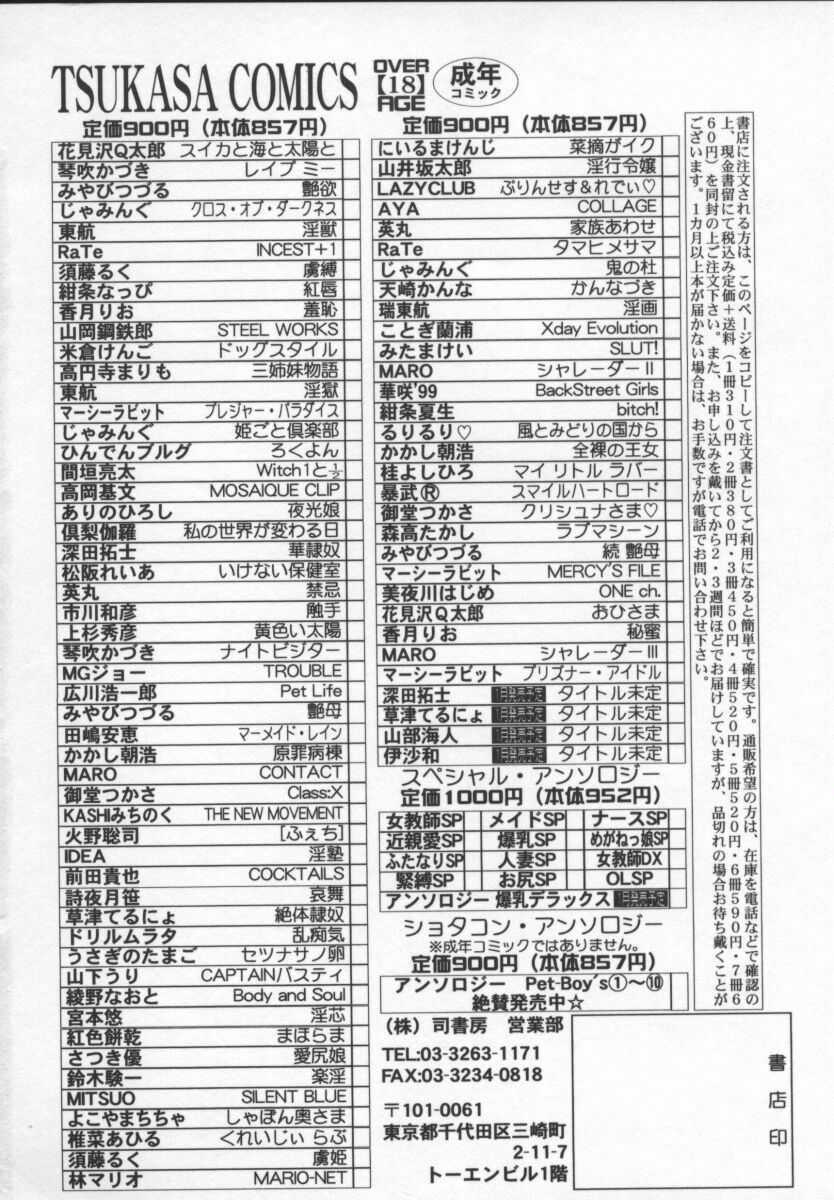 TSUKASA COMICS
OVER
【18】
AGE
成年
コミック
定価900円（本体857円）
花見沢Q太郎 スイカと海と太陽と
琴吹かづき レイプ ミー
みやびつづる 艶欲
じゃみんぐ クロス・オブ・ダークネス
東航 淫獣
RaTe INCEST+1
須藤るく 虜縛
紺条なっぴ 紅唇
香月りお 羞恥
山岡鋼鉄郎 STEEL WORKS
米倉けんご ドッグスタイル
高円寺まりも 三姉妹物語
東航 淫獄
マーシーラビット プレジャー・パラダイス
じゃみんぐ 姫ごと倶楽部
ひんでんブルグ ろくよん
間垣亮太 Witch1と½
高岡基文 MOSAIQUE CLIP
ありのひろし 夜光娘
倶梨伽羅 私の世界が変わる日
深田拓士 華隷奴
松阪れいあ いけない保健室
英丸 禁忌
市川和彦 触手
上杉秀彦 黄色い太陽
琴吹かづき ナイトビジター
MGジョー TROUBLE
広川浩一郎 Pet Life
みやびつづる 艶母
田嶋安恵 マーメイド・レイン
かかし朝浩 原罪病棟
MARO CONTACT
御堂つかさ Class:X
KASHIみちのく THE NEW MOVEMENT
火野聡司 [ふぇち]
IDEA 淫塾
前田貴也 COCKTAILS
詩夜月笹 哀舞
草津てるにょ 絶体隷奴
ドリルムラタ 乱痴気
うさぎのたまご セツナサノ卵
山下うり CAPTAINバスティ
綾野なおと Body and Soul
宮本悠 淫芯
紅色餅乾 まほらま
さつき優 愛尻娘
鈴木験一 楽淫
MITSUO SILENT BLUE
よこやまちちゃ しゃぼん奥さま
椎菜あひる くれいじぃ らぶ
須藤るく 虜姫
林マリオ MARIO-NET
定価900円（本体857円）
にいるまけんじ 菜摘がイク
山井坂太郎 淫行令嬢
LAZYCLUB ぷりんせす&れでぃ♡
AYA COLLAGE
英丸 家族あわせ
RaTe タマヒメサマ
じゃみんぐ 鬼の杜
天崎かんな かんなづき
瑞東航 淫画
ことぎ蘭浦 Xday Evolution
みたまけい SLUT!
MARO シャレーダーⅡ
華咲'99 BackStreet Girls
紺条夏生 bitch!
るりるり♡ 風とみどりの国から
かかし朝浩 全裸の王女
桂よしひろ マイ リトル ラバー
暴武Ⓡ スマイルハートロード
御堂つかさ クリシュナさま♡
森高たかし ラブマシーン
みやびつづる 続 艶母
マーシーラビット MERCY'S FILE
美夜川はじめ ONE ch.
花見沢Q太郎 おひさま
香月りお 秘蜜
MARO シャレーダーⅢ
マーシーラビット プリズナー・アイドル
深田拓士 1月発売予定 タイトル未定
草津てるにょ 1月発売予定 タイトル未定
山部海人 1月発売予定 タイトル未定
伊沙和 1月発売予定 タイトル未定
スペシャル・アンソロジー
定価1000円（本体952円）
女教師SP メイドSP ナースSP
近親愛SP 爆乳SP めがねっ娘SP
ふたなりSP 人妻SP 女教師DX
緊縛SP お尻SP OLSP
アンソロジー 爆乳デラックス 1月発売予定
ショタコン・アンソロジー
※成年コミックではありません。
定価900円（本体857円）
アンソロジー Pet-Boy's①〜⑩
絶賛発売中☆
（株）司書房 営業部
TEL:03-3263-1171
FAX:03-3234-0818
〒101-0061
東京都千代田区三崎町
2-11-7
トーエンビル1階
書店に注文される方は、このページをコピーして注文書としてご利用になると簡単で確実です。通販希望の方は、在庫を電話などで確認の
上、現金書留にて税込み定価＋送料（1冊310円・2冊380円・3冊450円・4冊520円・5冊520円・6冊590円・7冊6
60円）を同封の上ご注文下さい。また、お申し込みを戴いてから2・3週間ほどでお届けしていますが、品切れの場合お待ち戴くことが
ございます。1カ月以上本が届かない場合は、お手数ですが電話でお問い合わせ下さい。
書店印